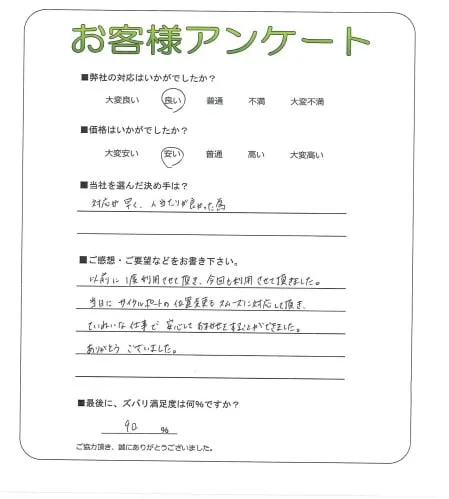 お客様アンケート
■弊社の対応はいかがでしたか？
大変良い 良い 普通 不満 大変不満
■価格はいかがでしたか？
大変安い 安い 普通 高い 大変高い
■当社を選んだ決め手は？
対応が早く、人当たりが良かった為
■ご感想・ご要望などをお書き下さい。
以前に1度利用させて頂き、今回も利用させて頂きました。
当日にサイクルポートの位置変更もスムーズに対応して頂き、
ていねいな仕事で安心しておまかせをすることができました。
ありがとうございました。
■最後に、ズバリ満足度は何％ですか？
90 ％
ご協力頂き、誠にありがとうございました。